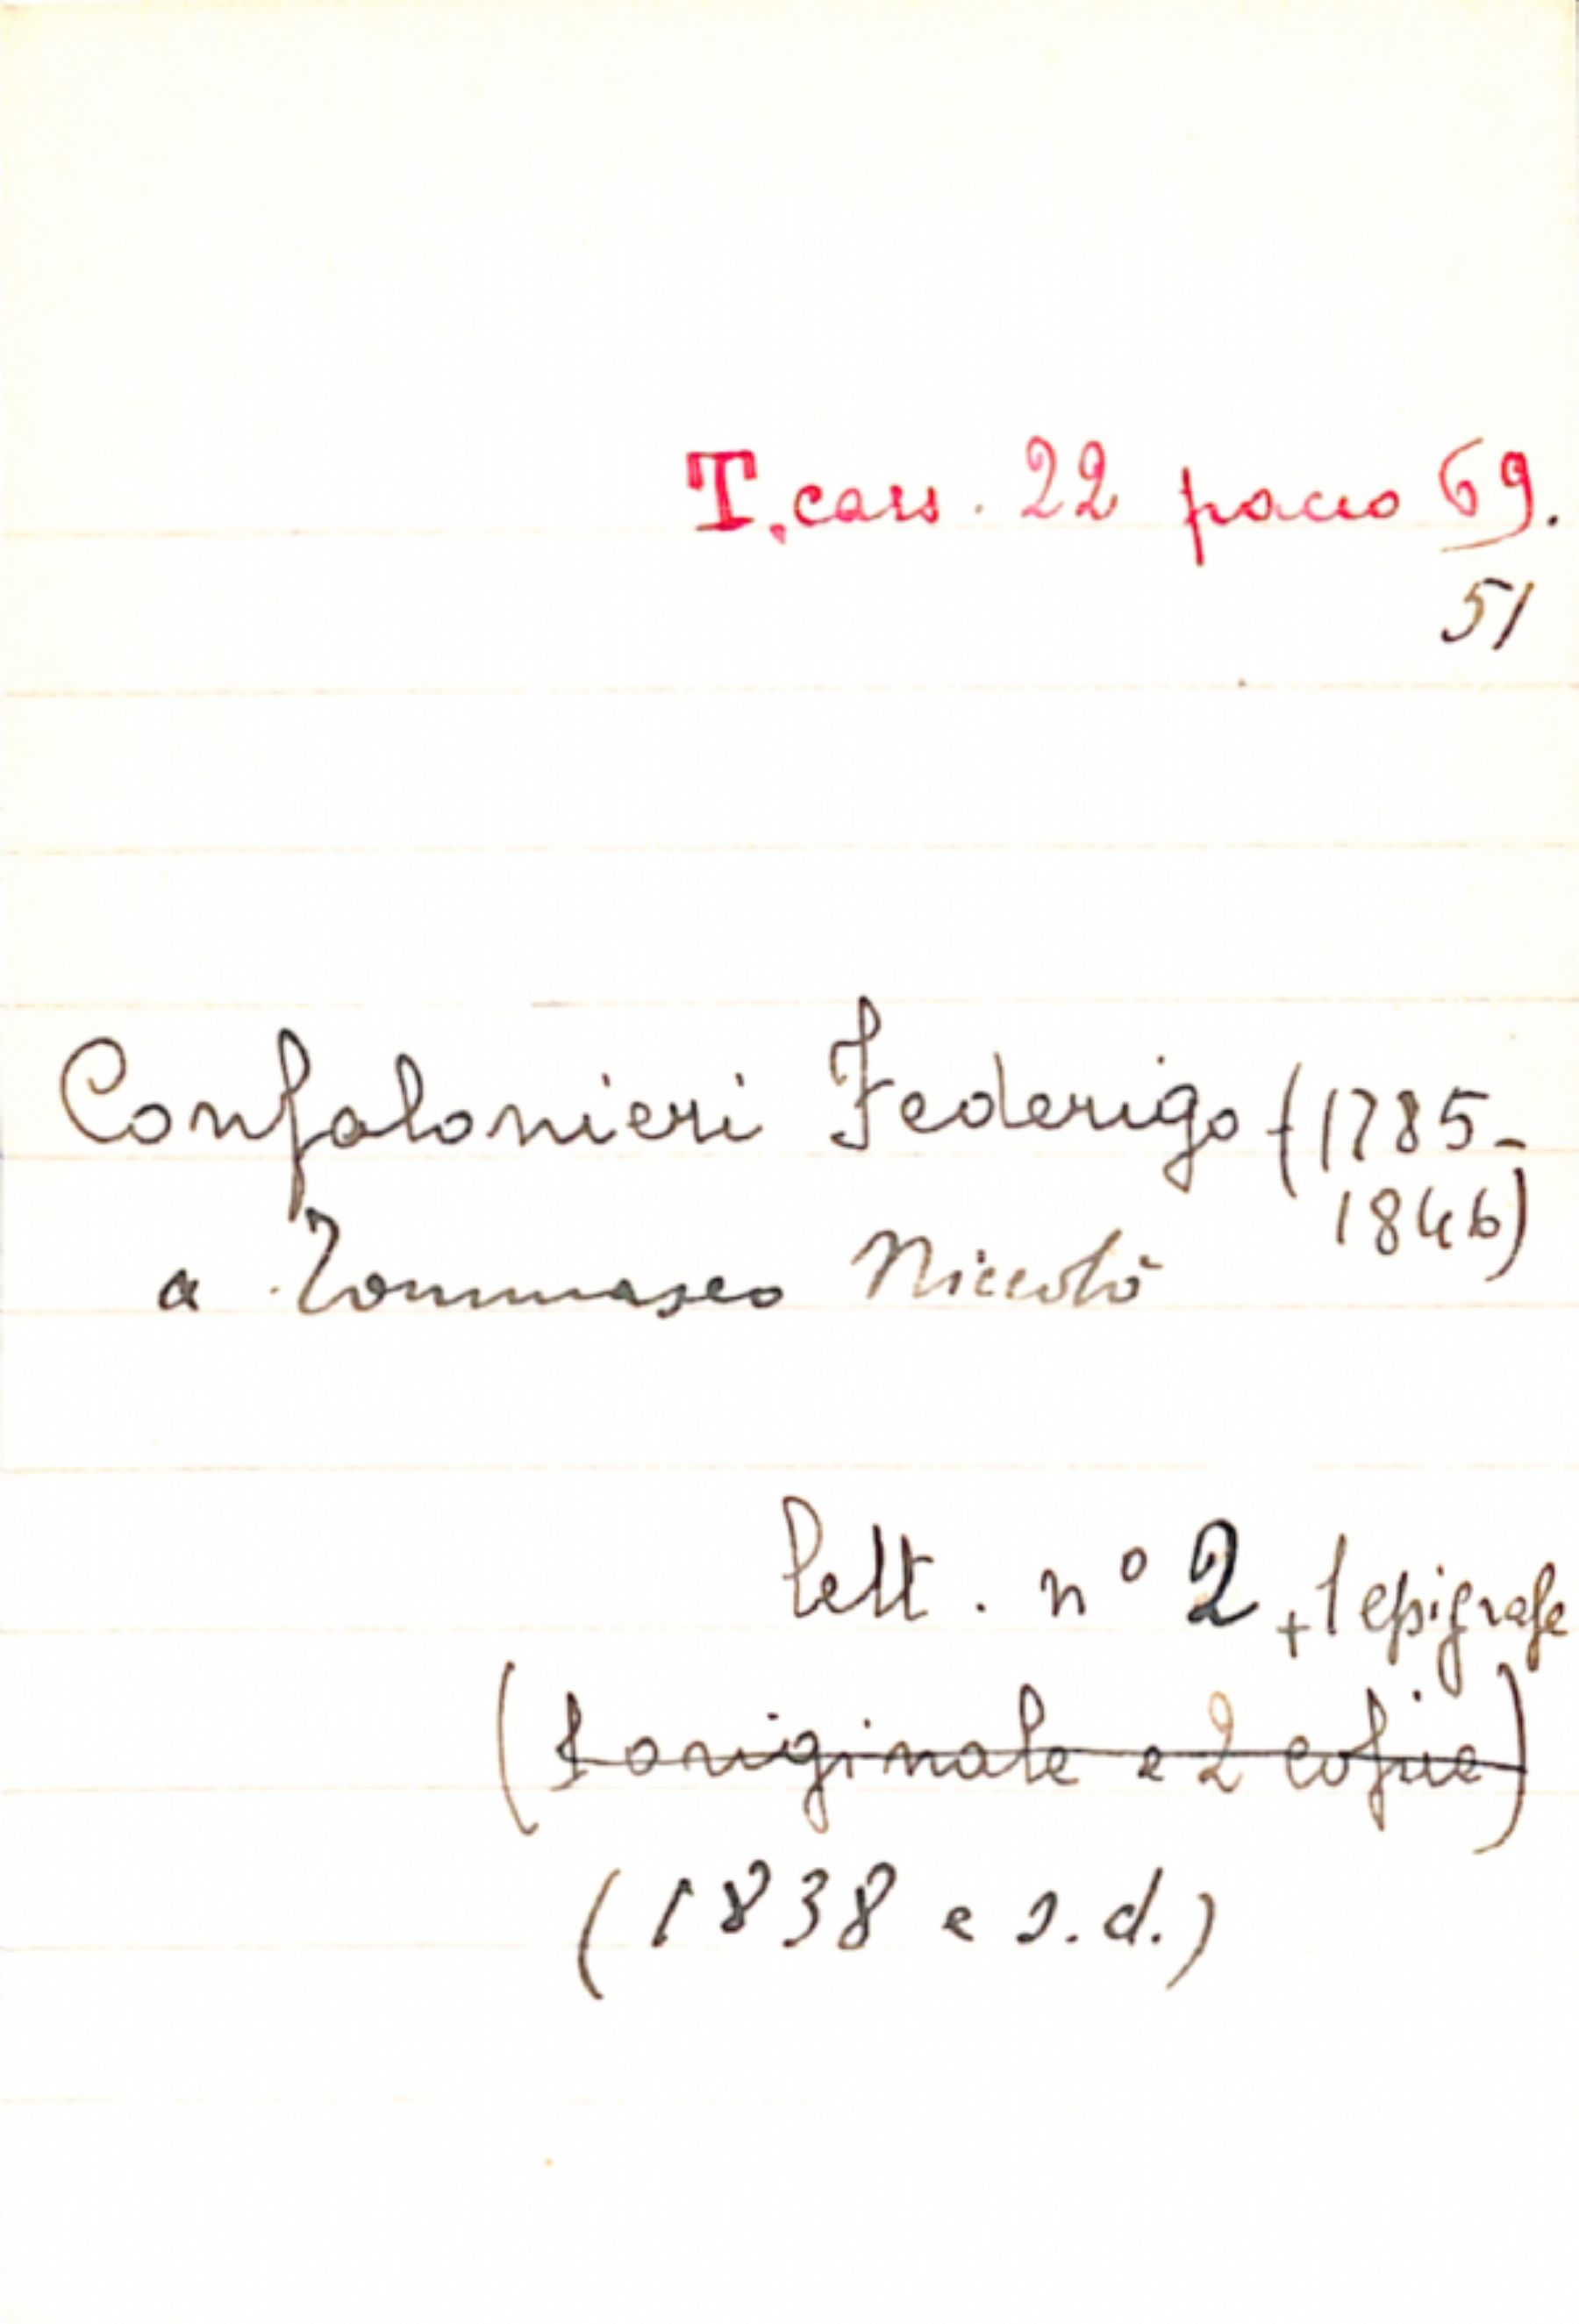 T. cass. 22 pacco 69.
51
Confalonieri Federigo (1785-
1846)
a Tommaseo Niccolò
lett. n° 2 + 1 epigrafe
(1 originale e 2 copie)
(1838 e s.d.)